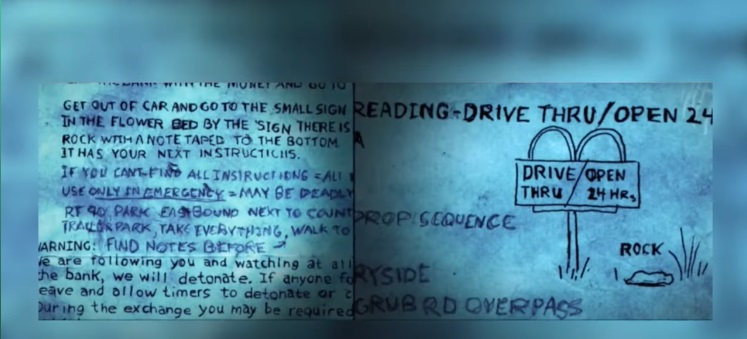 BANK WITH THE MONEY AND GO TO
GET OUT OF CAR AND GO TO THE SMALL SIGN
IN THE FLOWER BED BY THE SIGN THERE IS
ROCK WITH A NOTE TAPED TO THE BOTTOM
IT HAS YOUR NEXT INSTRUCTIONS.
IF YOU CANT FIND ALL INSTRUCTIONS = ALL
USE ONLY IN EMERGENCY = MAY BE DEADLY
RT 90 PARK EASTBOUND NEXT TO COUNT
TRAILER PARK, TAKE EVERYTHING, WALK TO
WARNING: FIND NOTES BEFORE
We are following you and watching at all
the bank, we will detonate. If anyone fo
eave and allow timers to detonate or
During the exchange you may be required
READING-DRIVE THRU/OPEN 24
DRIVE THRU / OPEN 24 HRS
DROP SEQUENCE
ROCK
RYSIDE
GRUB RD OVERPASS